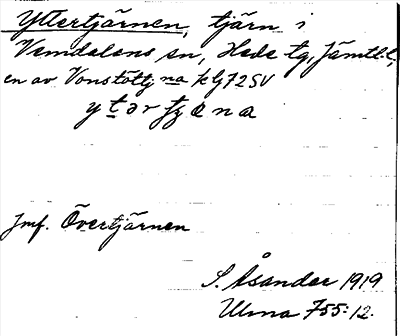 Yttertjärnen, tjärn i
Vemdalens sn, Hede tg, Jämtl. l,
en av Vonstöttj na kbl 72 SV
Jmf. Övertjärnen
S. Åsander 1919
Ulma 755:12.